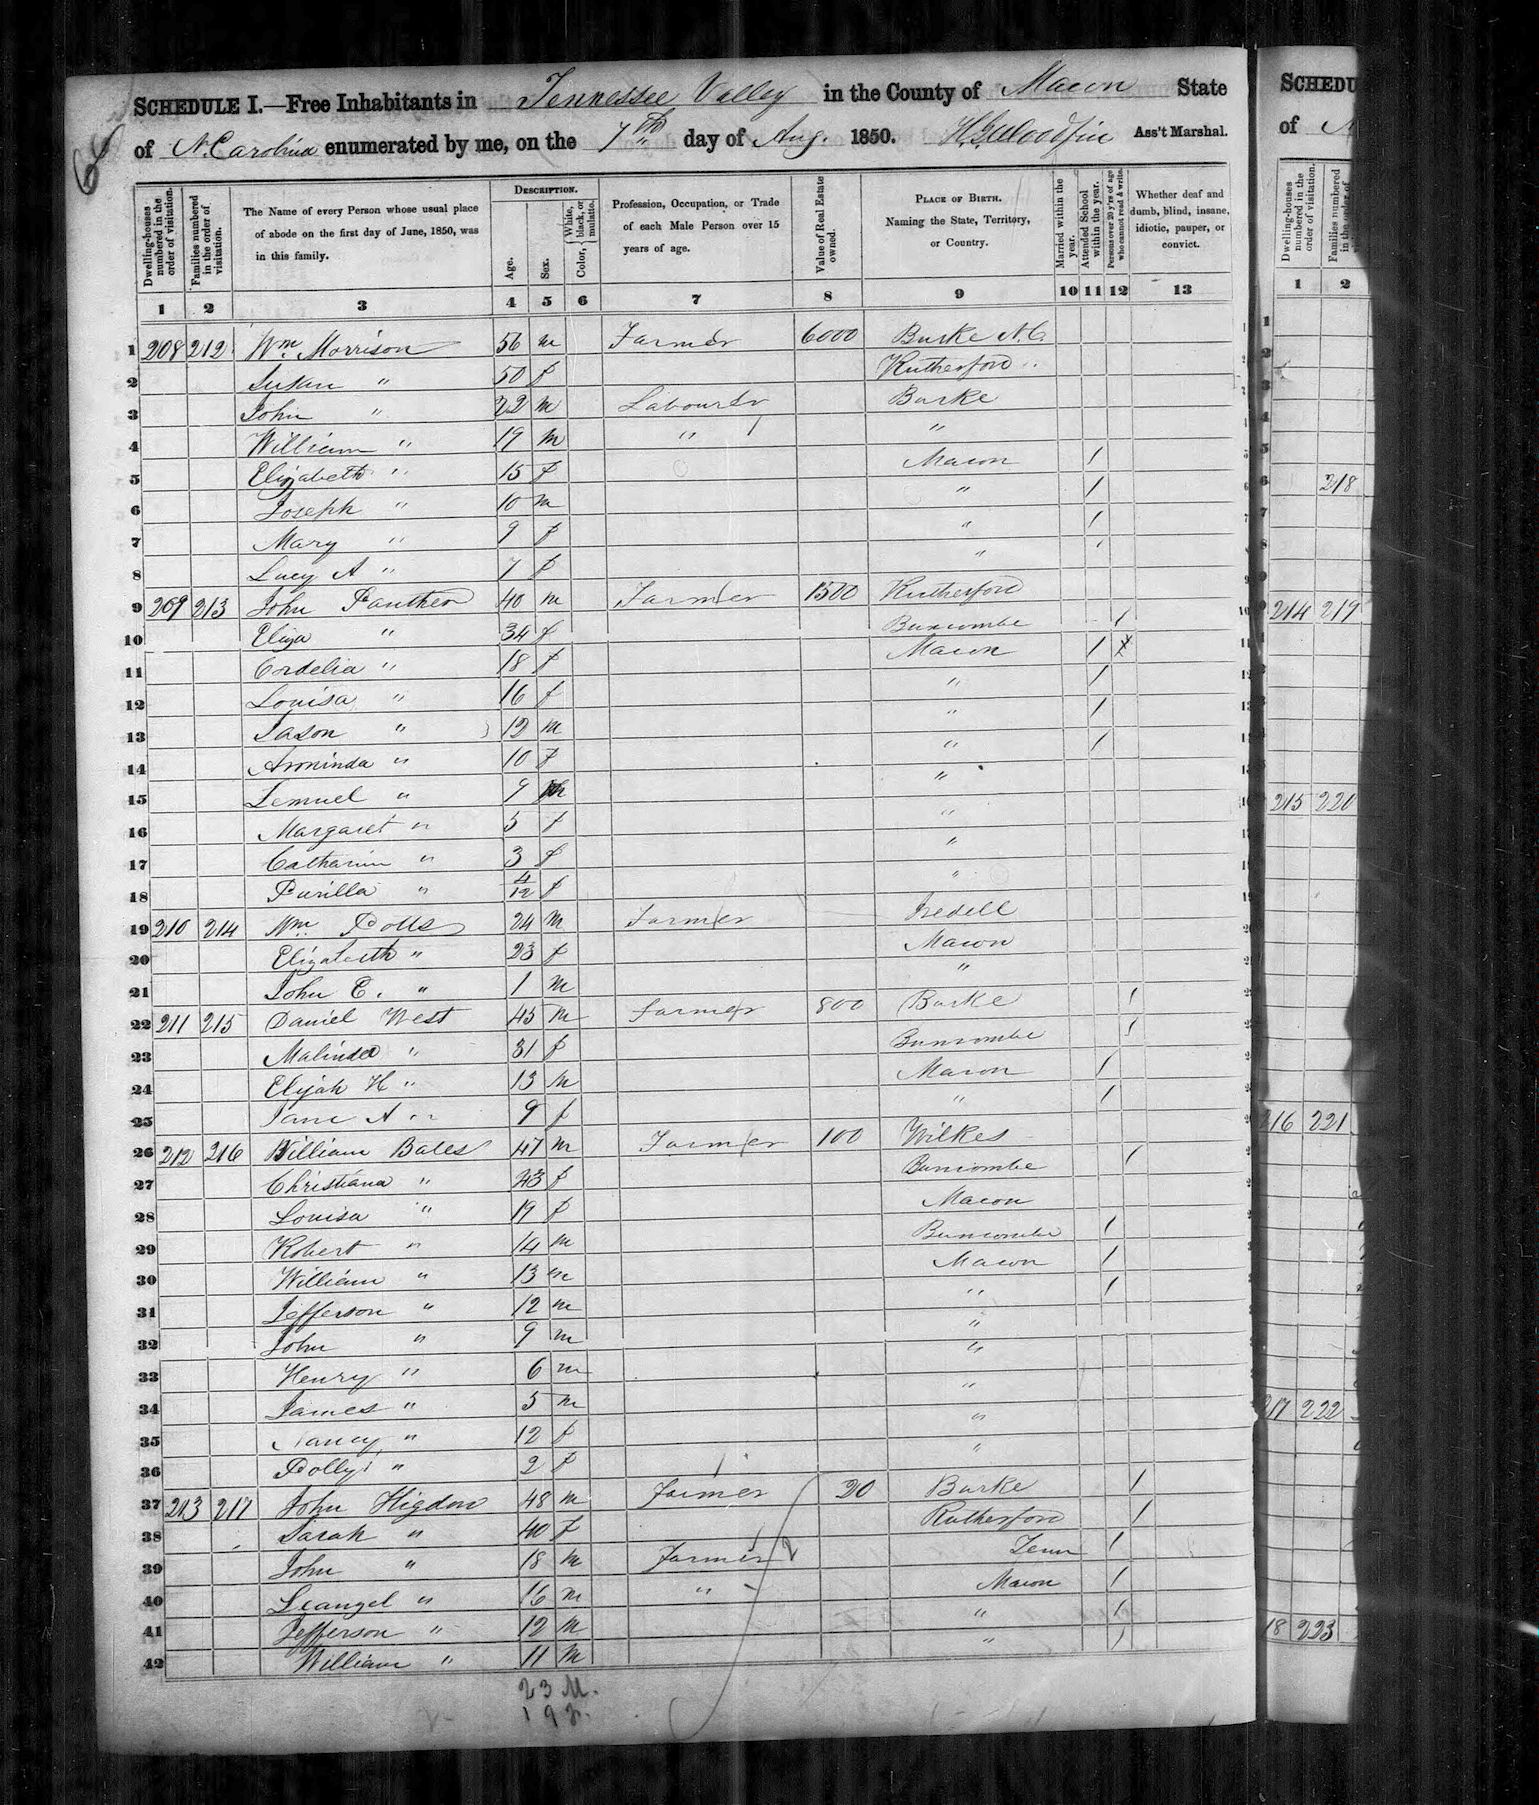 SCHEDULE I.—Free Inhabitants in Tennessee Valley in the County of Macon State
of N. Carolina enumerated by me, on the 7th day of Aug. 1850. Ass't Marshal.
Dwelling-houses numbered in the order of visitation.
Families numbered in the order of visitation.
The Name of every Person whose usual place of abode on the first day of June, 1850, was in this family.
DESCRIPTION.
Age.
Sex.
Color, { White, black, or mulatto.
Profession, Occupation, or Trade of each Male Person over 15 years of age.
Value of Real Estate owned.
PLACE OF BIRTH. Naming the State, Territory, or Country.
Married within the year.
Attended School within the year.
Persons over 20 y'rs of age who cannot read & write.
Whether deaf and dumb, blind, insane, idiotic, pauper, or convict.
1 2 3 4 5 6 7 8 9 10 11 12 13
1 208 212 Wm. Morrison 56 m Farmer 6000 Burke N.C.
2 Susan " 50 f Rutherford "
3 John " 22 m Labourer Burke
4 William " 19 m " "
5 Elizabeth " 15 f Macon /
6 Joseph " 10 m " /
7 Mary " 9 f " /
8 Lucy A " 7 f " /
9 209 213 John Panther 40 m Farmer 1500 Rutherford
10 Eliza " 34 f Buncombe /
11 Cordelia " 18 f Macon / X
12 Louisa " 16 f " /
13 Jason " 12 m " /
14 Arominda " 10 f " /
15 Lemuel " 9 m "
16 Margaret " 5 f "
17 Catharin " 3 f "
18 Purilla " 4/12 f "
19 210 214 Wm. Potts 24 m Farmer Iredell
20 Elizabeth " 23 f Macon
21 John E. " 1 m "
22 211 215 Daniel West 45 m Farmer 800 Burke /
23 Malinda " 31 f Buncombe /
24 Elijah H " 13 m Macon /
25 Jane A " 9 f " /
26 212 216 William Bates 47 m Farmer 100 Wilkes
27 Christiana " 43 f Buncombe /
28 Louisa " 19 f Macon
29 Robert " 14 m Buncombe /
30 William " 13 m Macon /
31 Jefferson " 12 m " /
32 John " 9 m "
33 Henry " 6 m "
34 James " 5 m "
35 Nancy " 12 f "
36 Polly " 2 f "
37 213 217 John Higdon 48 m Farmer 20 Burke /
38 Sarah " 40 f Rutherford /
39 John " 18 m Farmer Tenn /
40 Leangel " 16 m " Macon /
41 Jefferson " 12 m " /
42 William " 11 m " /
23 M.
19 f.
SCHEDU
of N
Dwelling-houses numbered in the order of visitation.
Families numbered in the order of
1 2
218
214 219
215 220
216 221
217 222
18 223